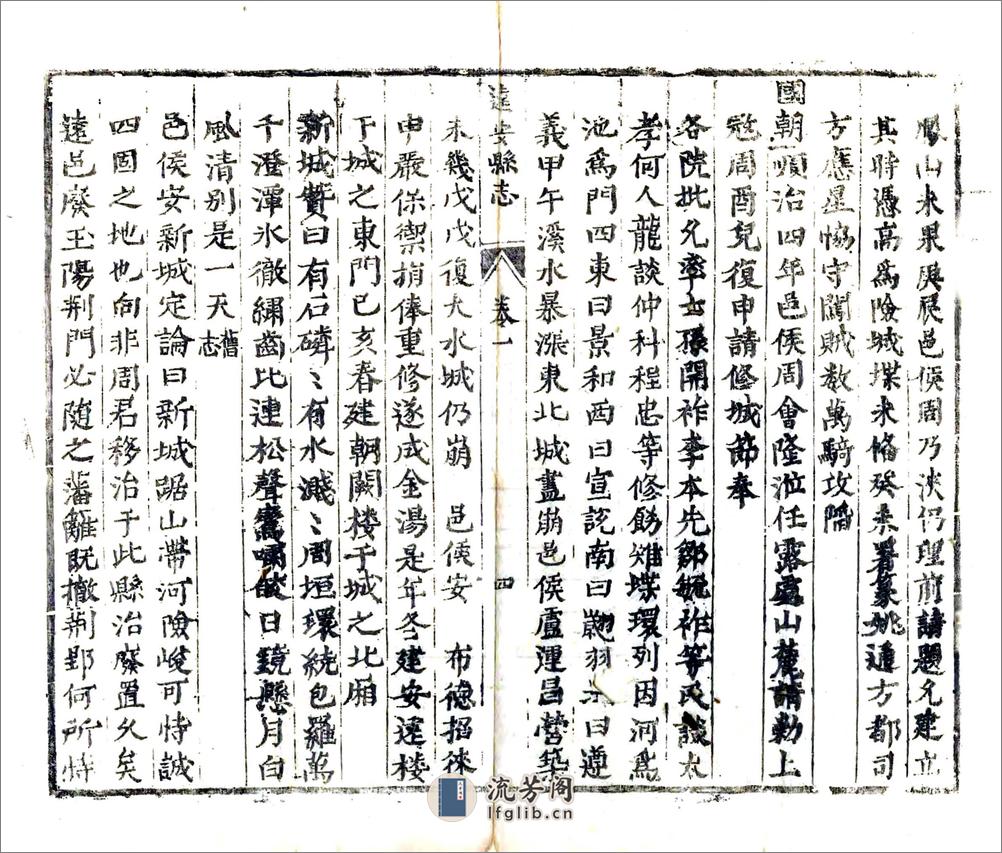 山未果庚辰邑侯周乃浹仍理前請題允建立
其時憑高爲險城堞未脩癸未署篆姚遁方都司
方應星恊守闖賊数萬騎攻陷
國朝順治四年邑侯周會隆涖任露處山麓請勅上
冦周酉兒復申請修城節奉
各院批允率士張開祚李本先鄒毓祚等民談太
孝何人龍談仲科程忠等修餝雉堞環列因河爲
池爲門四東曰景和西曰宣説南曰翽羽北曰遵
義甲午溪水暴漲東北城盡崩邑侯盧運昌營築
遠安縣志
卷一
四
未幾戊戌復大水城仍崩 邑侯安 布德招徠
申嚴保禦捐俸重修遂成金湯是年冬建安遠楼
于城之東門已亥春建朝闕楼于城之北厢
新城賛曰有石磷〻有水濺〻周垣環統包羅萬
千澄潭氷徹繡齒比連松聲鶯嘯 日鏡懸月白
風清别是一天 舊志
邑侯安新城定論曰新城踞山帶河險峻可恃誠
四固之地也向非周君移治于此縣治廢置久矣
遠邑廢玉陽荆門必随之藩籬既撤荆郢何所恃
流芳阁
lfglib.cn